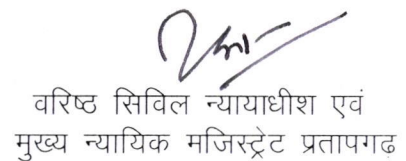 वरिष्ठ सिविल न्यायाधीश एवं
मुख्य न्यायिक मजिस्ट्रेट प्रतापगढ